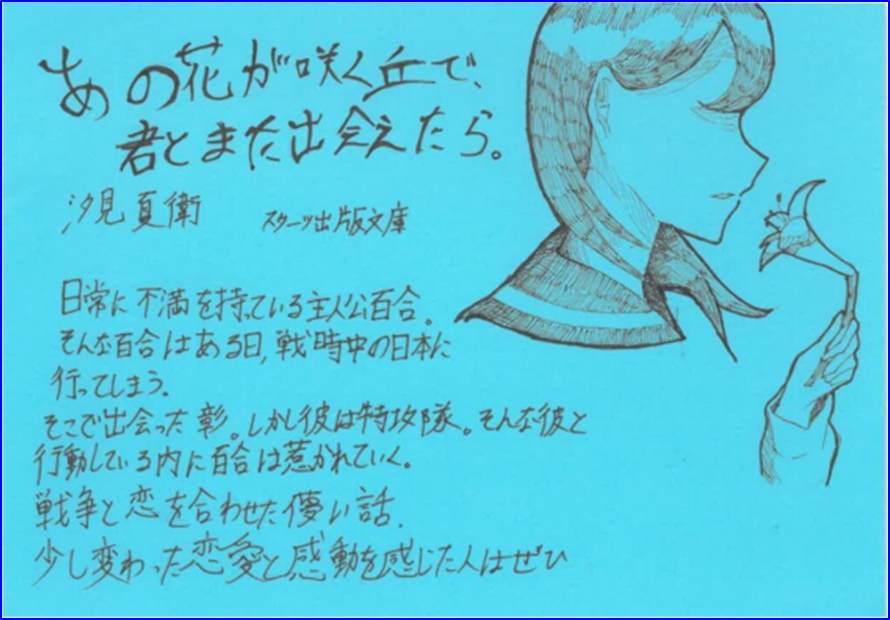 あの花が咲く丘で、
君とまた出会えたら。
汐見夏衛 スターツ出版文庫
日常に不満を持っている主人公百合。
そんな百合はある日,戦時中の日本に
行ってしまう.
そこで出会った彰。しかし彼は特攻隊。そんな彼と
行動している内に百合は惹かれていく。
戦争と恋を合わせた儚い話.
少し変わった恋愛と感動を感じた人はぜひ